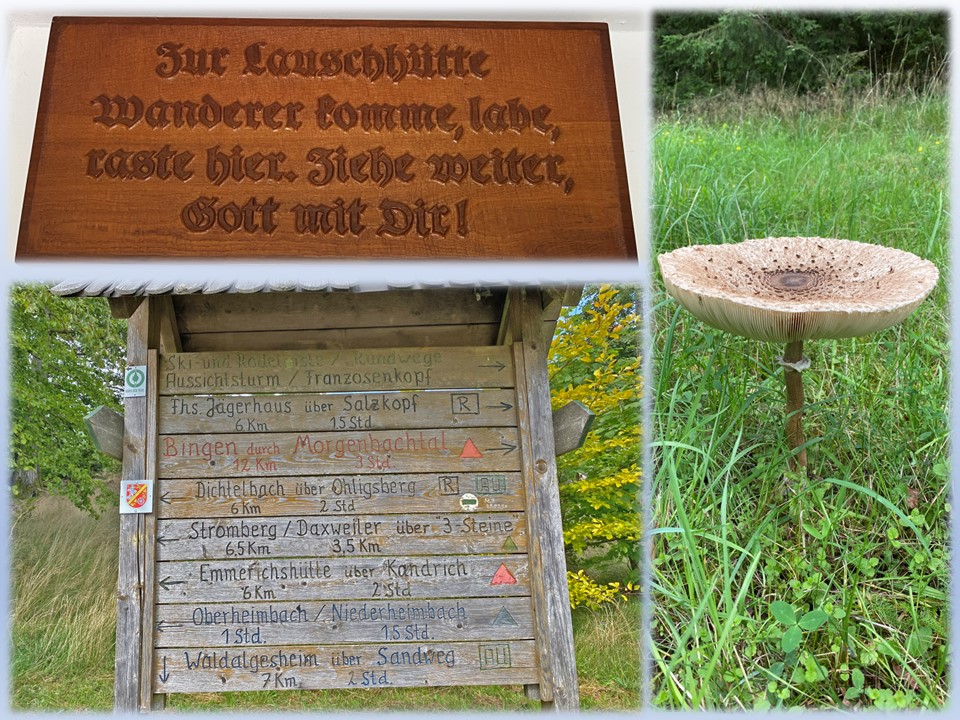 Zur Lauschhütte
Wanderer komme, labe,
raste hier. Ziehe weiter,
Gott mit Dir!
Ski- und Rodelpiste / Rundwege
Aussichtsturm / Franzosenkopf
Fhs. Jägerhaus über Salzkopf R
6 Km 1,5 Std
Bingen durch Morgenbachtal
12 Km 3 Std
Dichtelbach über Ohligsberg R EU
6 Km 2 Std
Stromberg / Daxweiler über "3-Steine"
6,5 Km 3,5 Km
Emmerichshütte über Kandrich
6 Km 2 Std
Oberheimbach / Niederheimbach
1 Std. 1,5 Std.
Waldalgesheim über Sandweg EU
7 Km 2 Std.